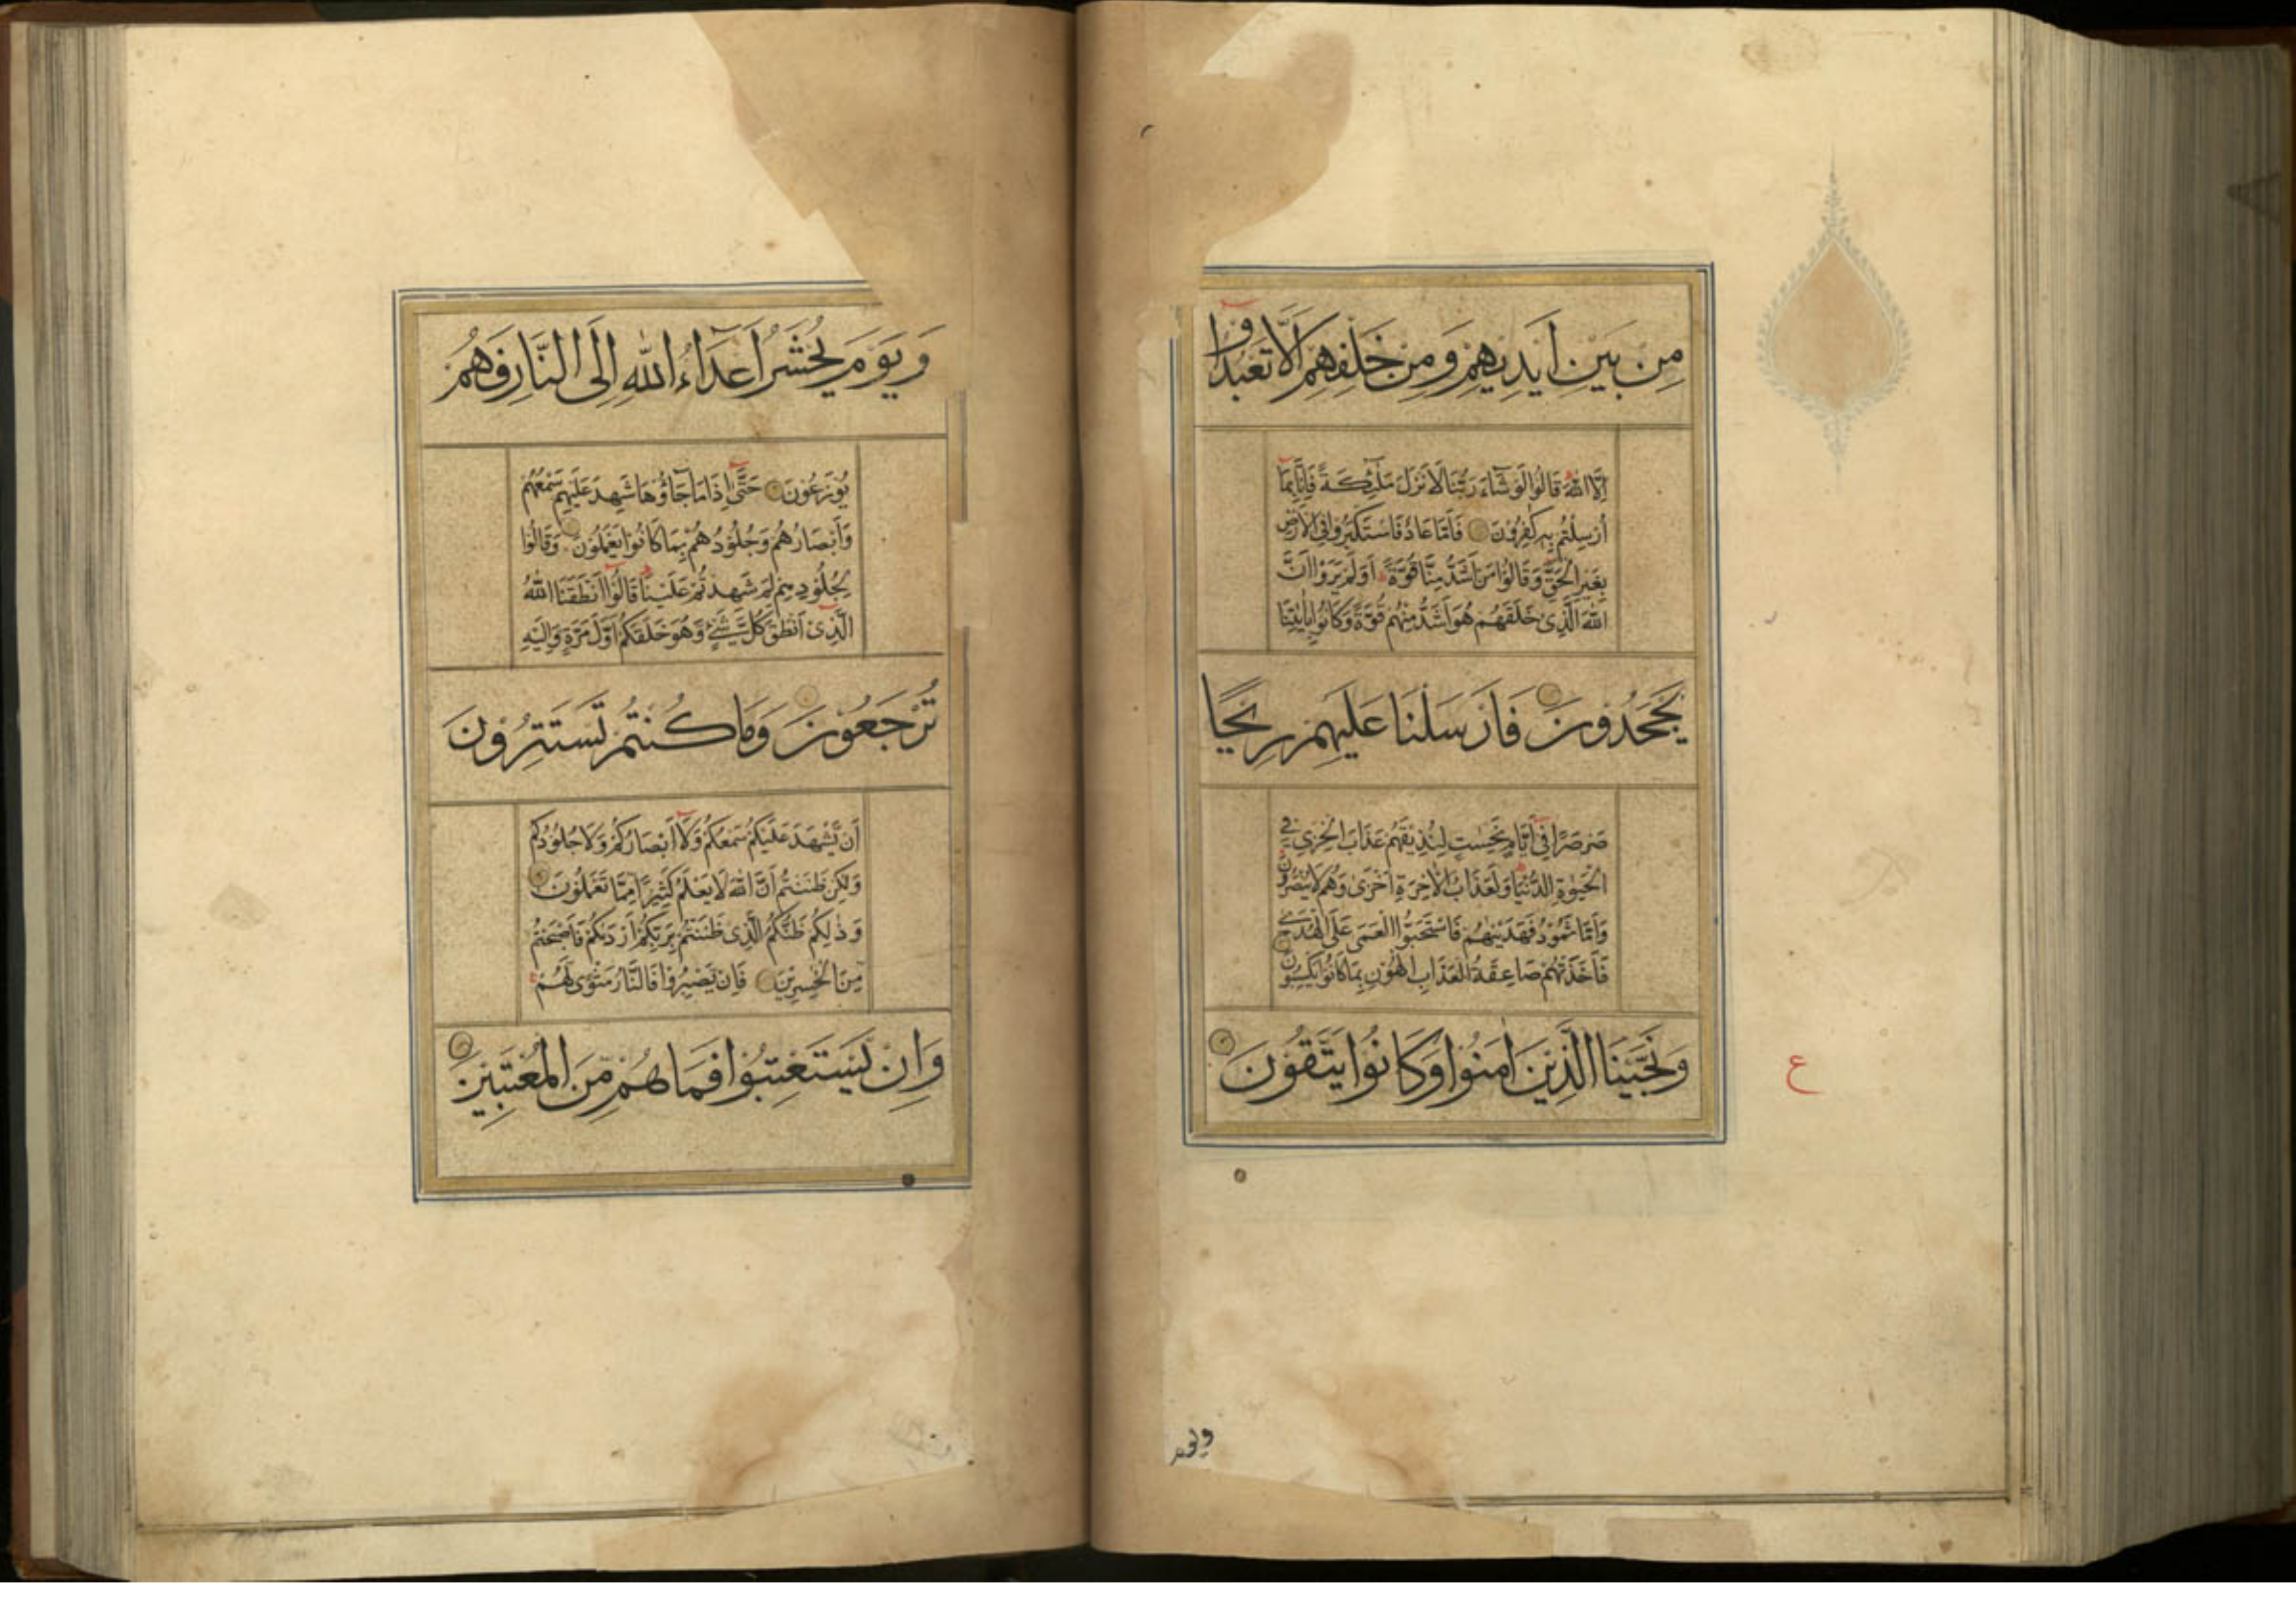 مِن بَيْنِ اَيْدِيهِمْ وَمِنْ خَلْفِهِمْ اَلَّا تَعْبُدُوا
اِلَّا اللّٰهَ قَالُوا لَوْ شَآءَ رَبُّنَا لَاَنْزَلَ مَلٰٓئِكَةً فَاِنَّا بِمَا
اُرْسِلْتُمْ بِهٖ كٰفِرُوْنَ فَاَمَّا عَادٌ فَاسْتَكْبَرُوا فِي الْاَرْضِ
بِغَيْرِ الْحَقِّ وَقَالُوْا مَنْ اَشَدُّ مِنَّا قُوَّةً اَوَلَمْ يَرَوْا اَنَّ
اللّٰهَ الَّذِيْ خَلَقَهُمْ هُوَ اَشَدُّ مِنْهُمْ قُوَّةً وَكَانُوْا بِاٰيٰتِنَا
يَجْحَدُونَ فَاَرْسَلْنَا عَلَيْهِمْ رِيْحًا
صَرْصَرًا فِيْ اَيَّامٍ نَحِسَاتٍ لِنُذِيْقَهُمْ عَذَابَ الْخِزْيِ فِي
الْحَيٰوةِ الدُّنْيَا وَلَعَذَابُ الْاٰخِرَةِ اَخْزٰى وَهُمْ لَا يُنْصَرُوْنَ
وَاَمَّا ثَمُوْدُ فَهَدَيْنٰهُمْ فَاسْتَحَبُّوا الْعَمٰى عَلَى الْهُدٰى
فَاَخَذَتْهُمْ صَاعِقَةُ الْعَذَابِ الْهُوْنِ بِمَا كَانُوْا يَكْسِبُوْنَ
وَنَجَّيْنَا الَّذِيْنَ اٰمَنُوْا وَكَانُوا يَتَّقُوْنَ
ع
ويوم
وَيَوْمَ يُحْشَرُ اَعْدَآءُ اللّٰهِ اِلَى النَّارِ فَهُمْ
يُوْزَعُوْنَ حَتّٰى اِذَا مَا جَآؤُهَا شَهِدَ عَلَيْهِمْ سَمْعُهُمْ
وَاَبْصَارُهُمْ وَجُلُوْدُهُمْ بِمَا كَانُوْا يَعْمَلُوْنَ وَقَالُوْا
لِجُلُوْدِهِمْ لِمَ شَهِدْتُمْ عَلَيْنَا قَالُوْا اَنْطَقَنَا اللّٰهُ
الَّذِيْ اَنْطَقَ كُلَّ شَيْءٍ وَهُوَ خَلَقَكُمْ اَوَّلَ مَرَّةٍ وَاِلَيْهِ
تُرْجَعُوْنَ وَمَا كُنْتُمْ تَسْتَتِرُوْنَ
اَنْ يَشْهَدَ عَلَيْكُمْ سَمْعُكُمْ وَلَآ اَبْصَارُكُمْ وَلَا جُلُوْدُكُمْ
وَلٰكِنْ ظَنَنْتُمْ اَنَّ اللّٰهَ لَا يَعْلَمُ كَثِيْرًا مِمَّا تَعْمَلُوْنَ
وَذٰلِكُمْ ظَنُّكُمُ الَّذِيْ ظَنَنْتُمْ بِرَبِّكُمْ اَرْدٰىكُمْ فَاَصْبَحْتُمْ
مِنَ الْخٰسِرِيْنَ فَاِنْ يَصْبِرُوْا فَالنَّارُ مَثْوًى لَهُمْ
وَاِنْ يَسْتَعْتِبُوْا فَمَا هُمْ مِنَ الْمُعْتَبِيْنَ